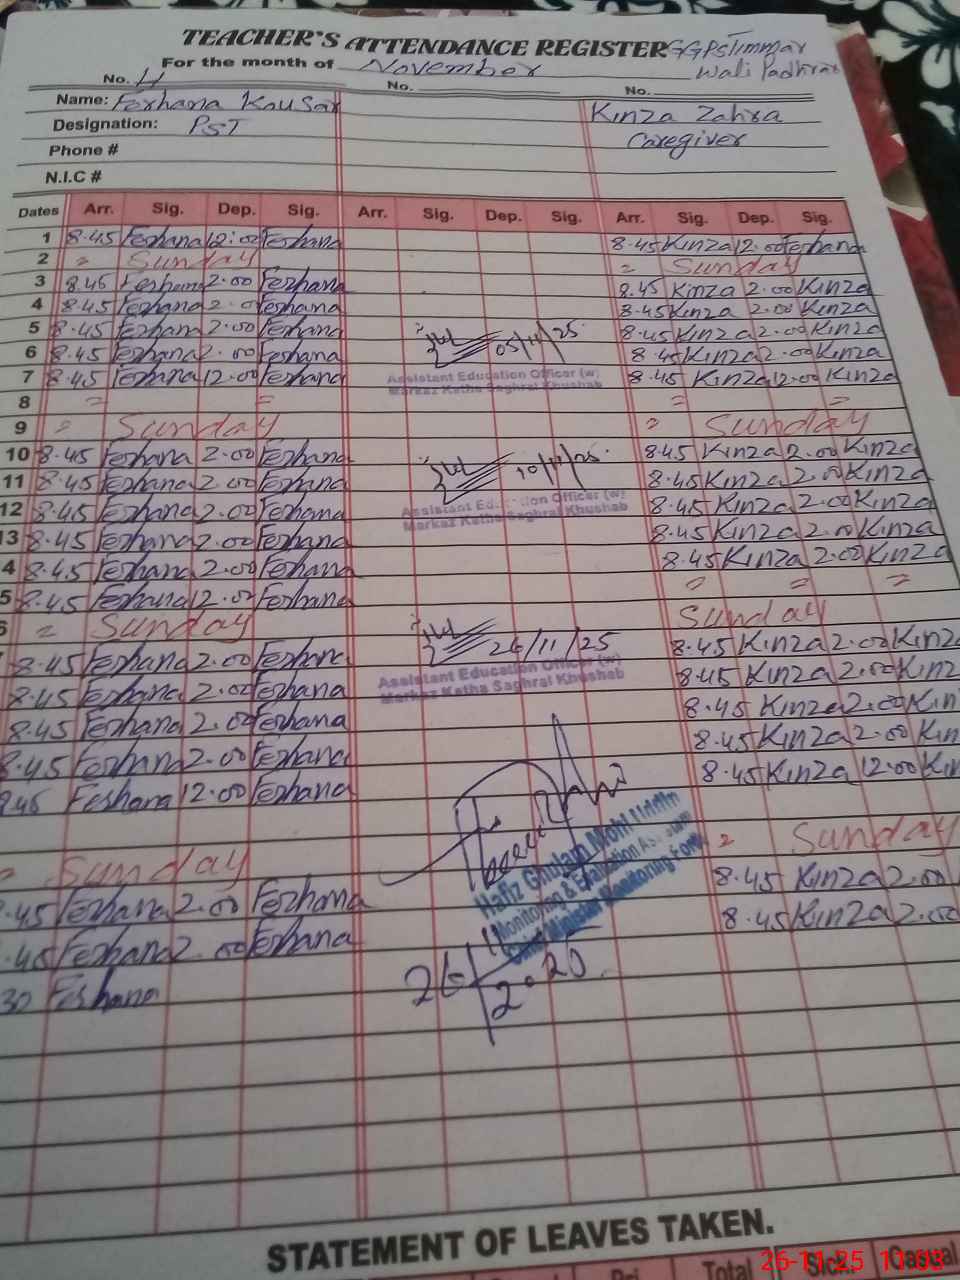 TEACHER'S ATTENDANCE REGISTER
For the month of November Wali Padhrar
No. 4 No. No.
Name: Ferhana Kousar Kinza Zahra
Designation: PST Caregiver
Phone #
N.I.C #
Dates Arr. Sig. Dep. Sig. Arr. Sig. Dep. Sig. Arr. Sig. Dep. Sig.
1 8.45 Ferhana 12:00 Ferhana 8.45 Kinza 12.00 Ferhana
2 = Sunday = Sunday
3 8.45 Ferhana 2.00 Ferhana 8.45 Kinza 2.00 Kinza
4 8.45 Ferhana 2.00 Ferhana 8.45 Kinza 2.00 Kinza
5 8.45 Ferhana 2.00 Ferhana 05/11/25 8.45 Kinza 2.00 Kinza
6 8.45 Ferhana 2.00 Ferhana 8.45 Kinza 2.00 Kinza
7 8.45 Ferhana 12.00 Ferhana Assistant Education Officer (w) 8.45 Kinza 12.00 Kinza
Markaz Katha Saghral Khushab
8 = = = =
9 = Sunday = Sunday
10 8.45 Ferhana 2.00 Ferhana 10/11/25 8.45 Kinza 2.00 Kinza
11 8.45 Ferhana 2.00 Ferhana 8.45 Kinza 2.00 Kinza
12 8.45 Ferhana 2.00 Ferhana Assistant Ed tion Officer (w) 8.45 Kinza 2.00 Kinza
Markaz Katha Saghral Khushab
13 8.45 Ferhana 2.00 Ferhana 8.45 Kinza 2.00 Kinza
4 8.45 Ferhana 2.00 Ferhana 8.45 Kinza 2.00 Kinza
5 8.45 Ferhana 12.00 Ferhana = = =
6 = Sunday Sunday
8.45 Ferhana 2.00 Ferhana 24/11/25 8.45 Kinza 2.00 Kinza
8.45 Ferhana 2.00 Ferhana Assistant Education Officer (w) 8.45 Kinza 2.00 Kinz
Markaz Katha Saghral Khushab
8.45 Ferhana 2.00 Ferhana 8.45 Kinza 2.00 Kin
8.45 Ferhana 2.00 Ferhana 8.45 Kinza 2.00 Kin
8.45 Ferhana 12.00 Ferhana 8.45 Kinza 12.00 Kin
= Sunday = Sunday
.45 Ferhana 2.00 Ferhana 8.45 Kinza 2.00
.45 Ferhana 2.00 Ferhana 8.45 Kinza 2.00
30 Ferhana
Hafiz Ghulam Mohi Uddin
Monitoring & Evaluation
Chief Minister Monitoring Force
26/
2025
STATEMENT OF LEAVES TAKEN.
Total Sick. Casual
26-11-25 11:03